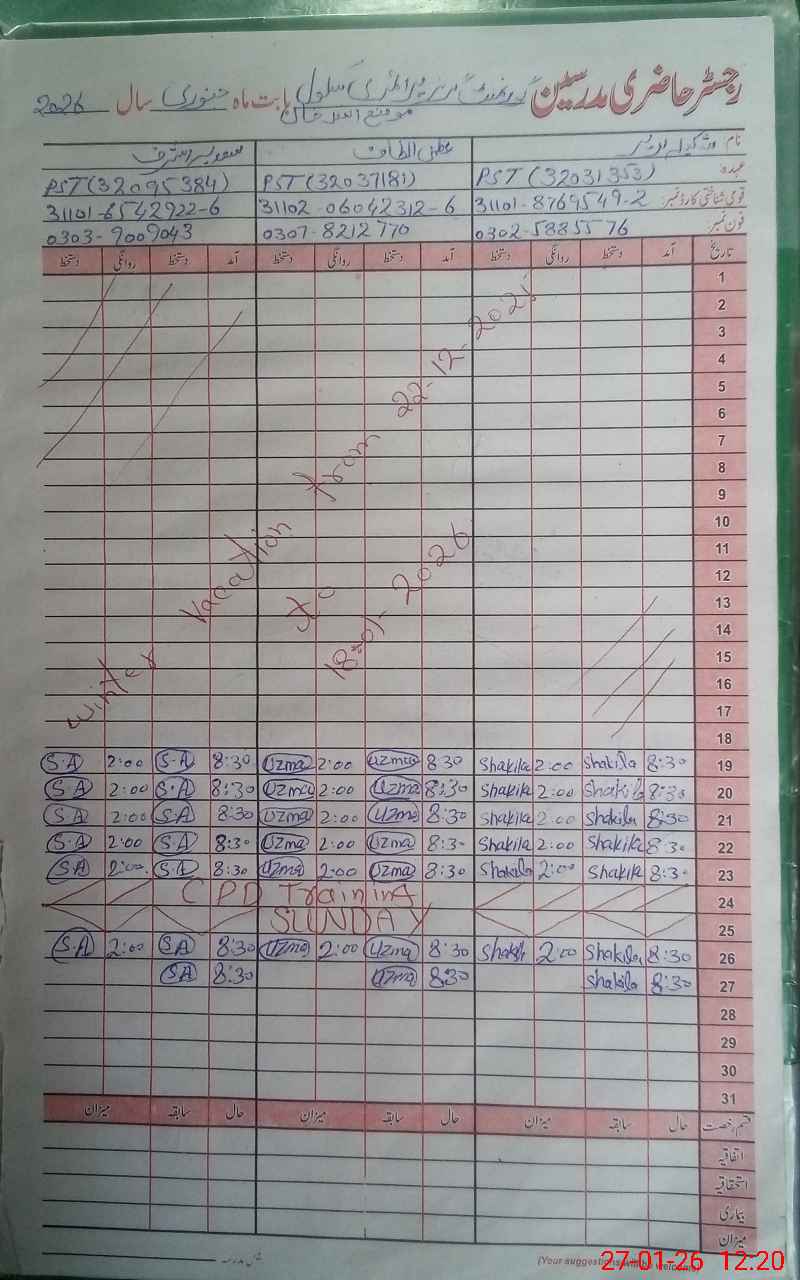 رجسٹر حاضری مدرسین گورنمنٹ پرائمری سکول بابت ماہ جنوری سال 2026
نام
عہدہ PST (32031353) PST (32037181) PST (32095384)
قومی شناختی کارڈ نمبر 31101-8769549-2 31102-06042312-6 31101-6542922-6
فون نمبر 0302-5885576 0307-8212770 0303-9009043
تاریخ آمد دستخط روانگی دستخط آمد دستخط روانگی دستخط آمد دستخط روانگی دستخط
1
2
3
4
5
6
7
8
9
10
11
12
13
14
15
16
17
18
winter vacation from 22-12-2025
to
18-01-2026
S.A 2:00 S.A 8:30 Uzma 2:00 Uzma 8:30 Shakila 2:00 Shakila 8:30 19
S.A 2:00 S.A 8:30 Uzma 2:00 Uzma 8:30 Shakila 2:00 Shakila 8:30 20
S.A 2:00 S.A 8:30 Uzma 2:00 Uzma 8:30 Shakila 2:00 Shakila 8:30 21
S.A 2:00 S.A 8:30 Uzma 2:00 Uzma 8:30 Shakila 2:00 Shakila 8:30 22
S.A 2:00 S.A 8:30 Uzma 2:00 Uzma 8:30 Shakila 2:00 Shakila 8:30 23
CPD Training 24
SUNDAY 25
S.A 2:00 S.A 8:30 Uzma 2:00 Uzma 8:30 Shakila 2:00 Shakila 8:30 26
S.A 8:30 Uzma 8:30 Shakila 8:30 27
28
29
30
31
قسم رخصت حال سابقہ میزان حال سابقہ میزان حال سابقہ میزان
اتفاقیہ
استحقاقیہ
بیماری
میزان
(Your suggestions will be welcome
27-01-26 12:20